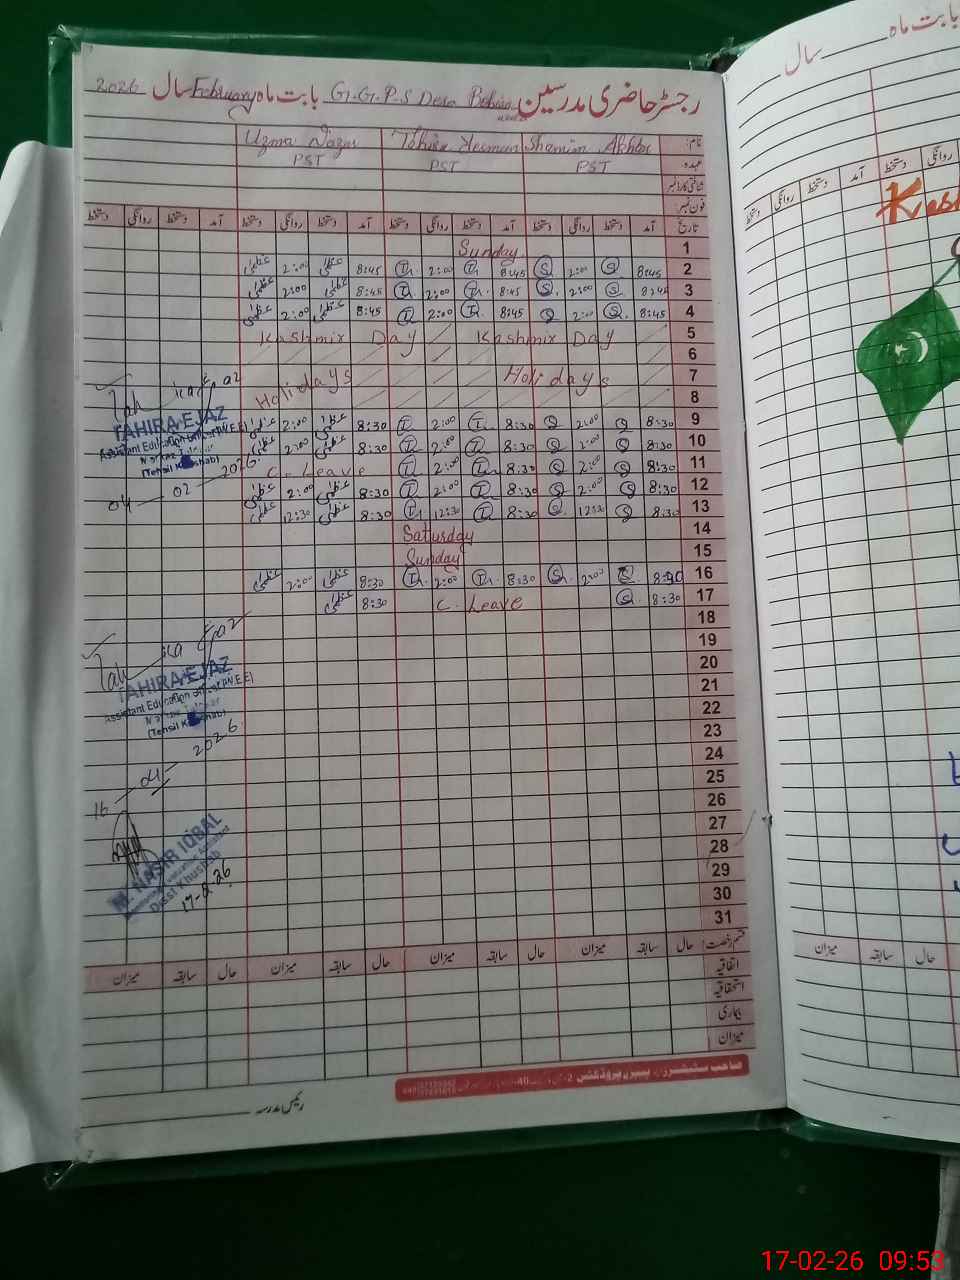 رجسٹر حاضری مدرسین G.G.P.S Dera بابت ماہ February سال 2026
نام: Shamim Akhtar Uzma
عہدہ: PST PST PST
شناختی کارڈ نمبر
فون نمبر:
تاریخ آمد دستخط روانگی دستخط آمد دستخط روانگی دستخط آمد دستخط روانگی دستخط آمد دستخط روانگی دستخط
1 Sunday
2 8:45 S 2:00 S 8:45 2:00 8:45 عظمیٰ 2:00 عظمیٰ
3 8:45 S 2:00 S 8:45 2:00 8:45 عظمیٰ 2:00 عظمیٰ
4 8:45 S 2:00 S 8:45 2:00 8:45 عظمیٰ 2:00 عظمیٰ
5 Kashmir Day Kashmir Day
6
7 Holidays Holidays
8
9 8:30 S 2:00 S 8:30 2:00 8:30 عظمیٰ 2:00 عظمیٰ
10 8:30 S 2:00 S 8:30 2:00 8:30 عظمیٰ 2:00 عظمیٰ
11 8:30 S 2:00 S 8:30 2:00 C. Leave
12 8:30 S 2:00 S 8:30 2:00 8:30 عظمیٰ 2:00 عظمیٰ
13 8:30 S 12:30 S 8:30 12:30 8:30 عظمیٰ 12:30 عظمیٰ
14 Saturday
15 Sunday
16 S 2:00 S 8:30 2:00 8:30 عظمیٰ 2:00 عظمیٰ
17 8:30 S C. Leave 8:30 عظمیٰ
18
19
20
21
22
23
24
25
26
27
28
29
30
31
TAHIRA EJAZ
Assistant Education Officer (W.E.E)
Markaz
(Tehsil Khushab)
04 — 02 — 2026
TAHIRA EJAZ
Assistant Education Officer (W.E.E)
Markaz
(Tehsil Khushab)
16 — 2026
M. NASIR IQBAL
Monitoring Evaluation Assistant
Distt Khushab
17-2-26
قسم رخصت حال سابقہ میزان حال سابقہ میزان حال سابقہ میزان حال سابقہ میزان
اتفاقیہ
استحقاقیہ
بیماری
میزان
صاحب سٹیشنرز اینڈ پیپر پروڈکٹس
رئیس مدرسہ
بابت ماہ سال
آمد دستخط روانگی دستخط
روانگی
حال سابقہ میزان
17-02-26 09:53